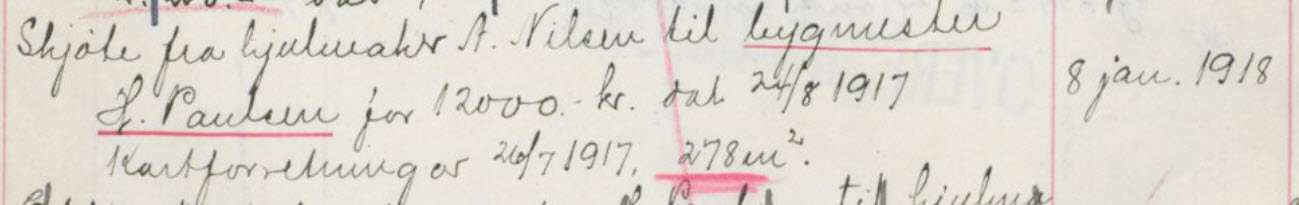 Skjøte fra hjulmaker A. Nilsen til bygmester
H. Paulsen for 12000.- kr. dat. 24/8 1917
8 jan. 1918
Kartforretning av 26/7 1917, 278 m².
till hjulma